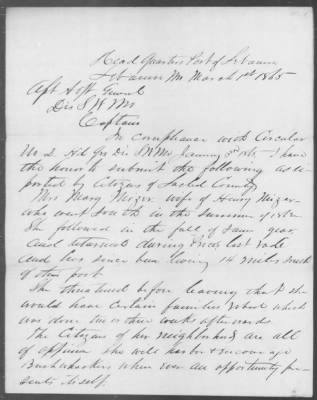 Head Quarters Post of Lebanon
Lebanon Mo March 1st 1865
Asst Adjt General
Dis S W Mo
Captain
In compliance with Circular
No 2 Hd Qrs Dis S W Mo January 3rd 1865 I have
the honor to submit the following as re-
ported by Citizens of Laclede County
Mrs Mary Mizer wife of Henry Mizer
who went South in the summer of 1862
She followed in the fall of same year
and returned during Prices last raid
and has since been living 14 miles south
of this post
She threatened before leaving that she
would have certain families robed which
was done two or three weeks afterwards
The Citizens of her neighborhood are all
of opinion she will harbor & encourage
bushwhackers when ever an opportunity pre-
sents itself.